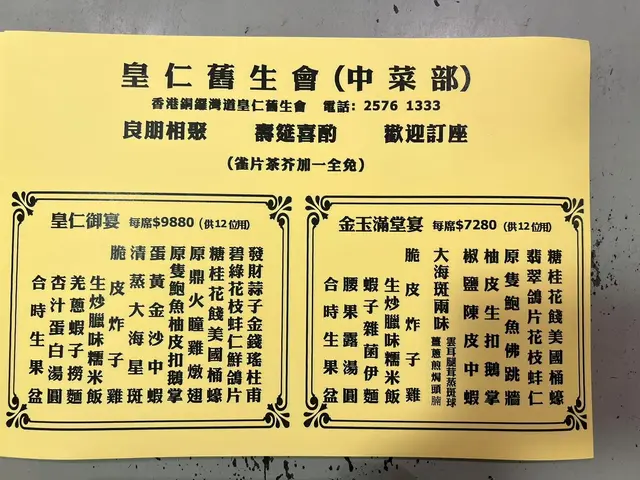 皇仁舊生會(中菜部)
香港銅鑼灣道皇仁舊生會 電話: 2576 1333
良朋相聚 壽筵喜酌 歡迎訂座
(雀片茶芥加一全免)
皇仁御宴 每席$9880 (供12位用)
發財蒜子金錢瑤柱甫
碧綠花枝蚌仁鮮鴿片
糖桂花餞美國桶蠔
原鼎火瞳雞燉翅
原隻鮑魚柚皮扣鵝掌
蛋黃金沙中蝦
清蒸大海星斑
脆皮炸子雞
生炒臘味糯米飯
羌蔥蝦子撈麵
杏汁蛋白湯圓
合時生果盆
金玉滿堂宴 每席$7280 (供12位用)
糖桂花餞美國桶蠔
翡翠鴿片花枝蚌仁
原隻鮑魚佛跳牆
柚皮生扣鵝掌
椒鹽陳皮中蝦
大海斑兩味
雲耳腿茸蒸斑球
薑蔥煎焗頭腩
脆皮炸子雞
生炒臘味糯米飯
蝦子雜菌伊麵
腰果露湯圓
合時生果盆